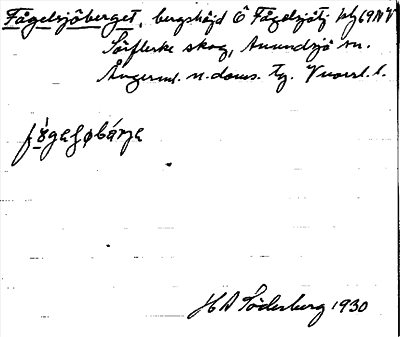 Fågelsjöberget, bergshöjd Ö Fågelsjötj kbj 69 NV
Sörflärke skog, Anundsjö sn.
Ångerml. n. doms. Tg. Vnorrl. l.
HA Söderberg 1930